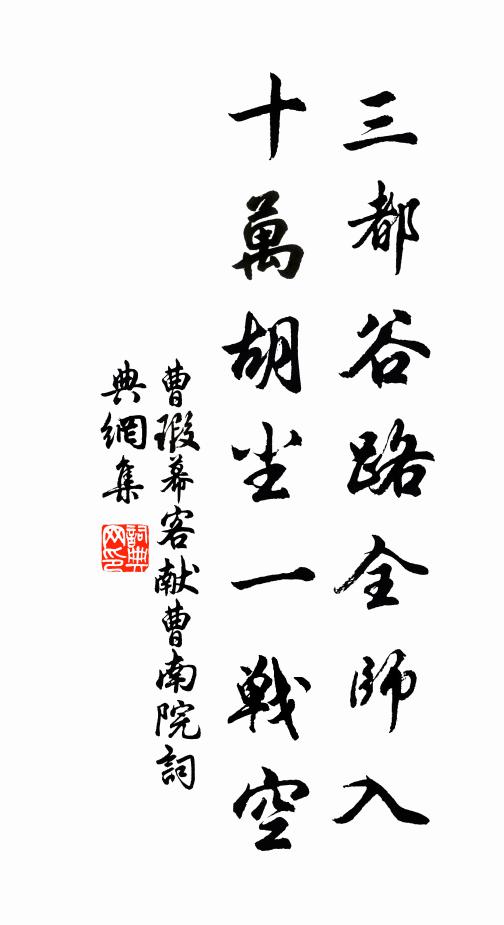 三都谷路全师入
十萬胡尘一戰空
曹瑕幕客献曹南院詞
典網集
詞典网印